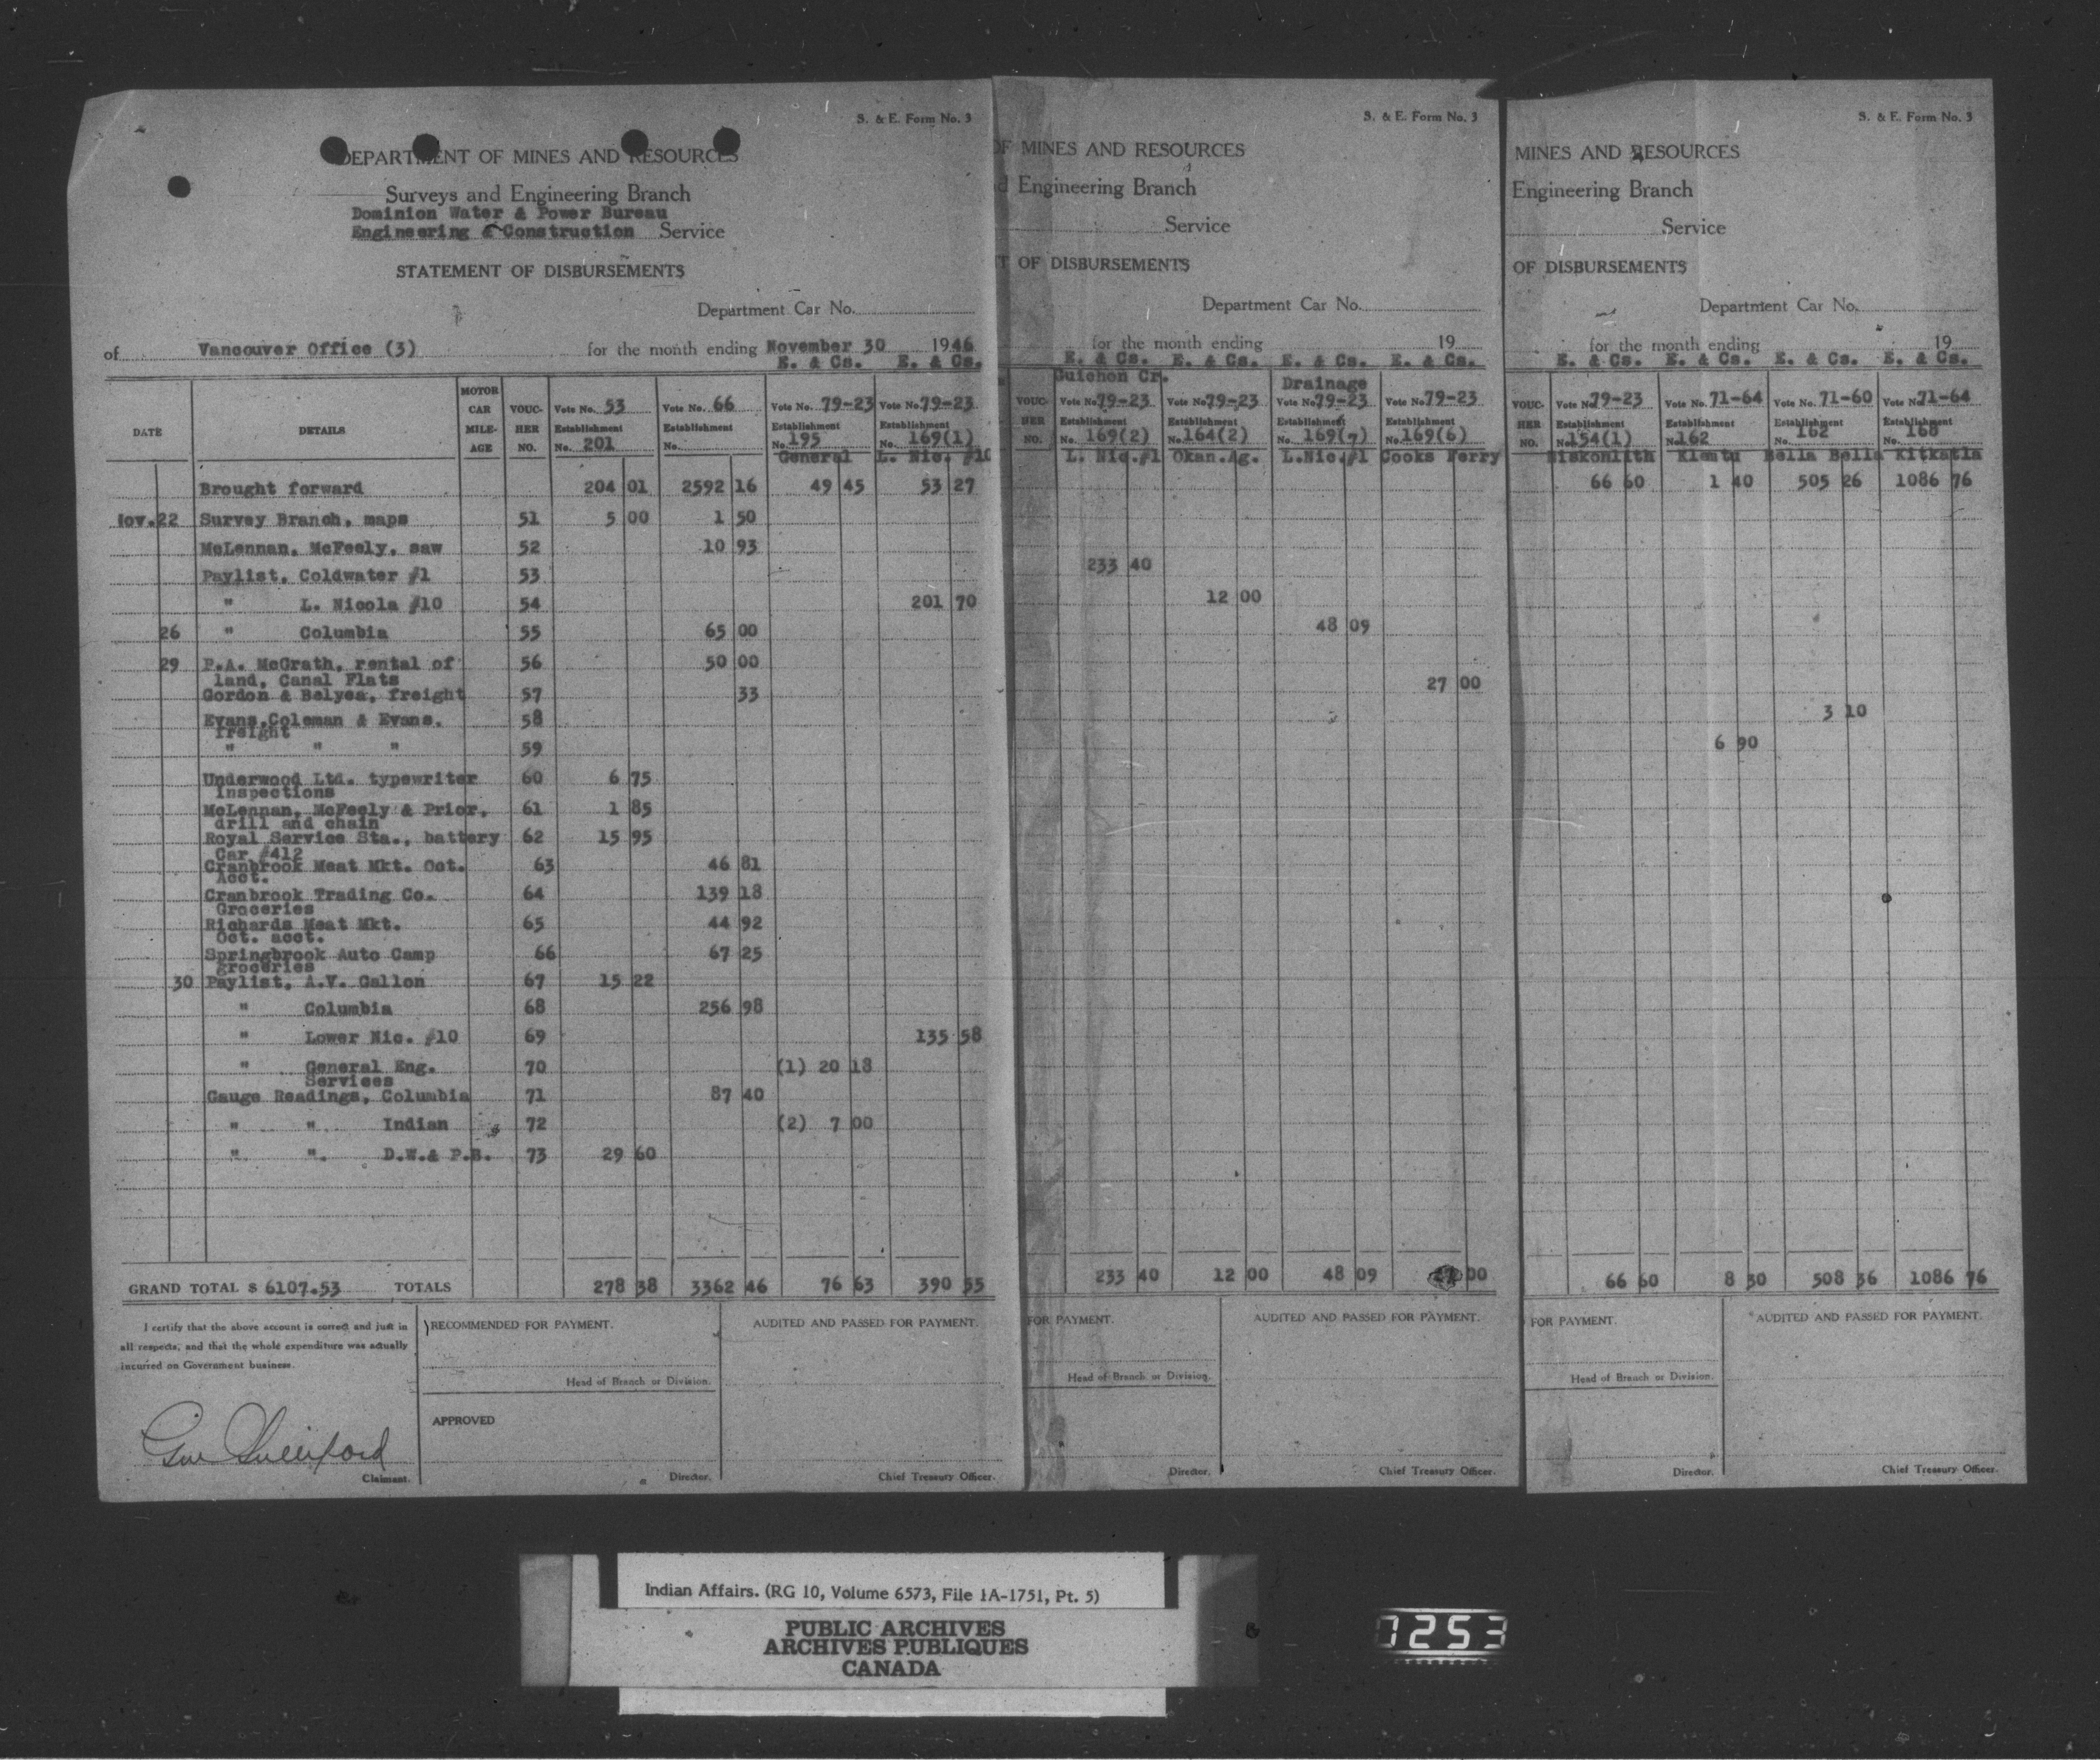 S. & E. Form No. 3
DEPARTMENT OF MINES AND RESOURCES
Surveys and Engineering Branch
Dominion Water & Power Bureau
Engineering & Construction Service
STATEMENT OF DISBURSEMENTS
Department Car No.
of Vancouver Office (3) for the month ending November 30 1946
E. & Cs. E. & Cs.
DATE DETAILS MOTOR CAR MILE-AGE VOUC-HER NO. Vote No. 53 Establishment No. 201 Vote No. 66 Establishment No. Vote No. 79-23 Establishment No. 195 General Vote No. 79-23 Establishment No. 169(1) L. Nic. #10
Brought forward 204 01 2592 16 49 45 53 27
Nov. 22 Survey Branch, maps 51 5 00 1 50
McLennan, McFeely, saw 52 10 93
Paylist, Coldwater #1 53
" L. Nicola #10 54 201 70
26 " Columbia 55 65 00
29 P.A. McGrath, rental of 56 50 00
land, Canal Flats
Gordon & Belyea, freight 57 33
Evans, Coleman & Evans, 58
freight
" " " 59
Underwood Ltd. typewriter 60 6 75
Inspections
McLennan, McFeely & Prior, 61 1 85
drill and chain
Royal Service Sta., battery 62 15 95
Car #412
Cranbrook Meat Mkt. Oct. 63 46 81
Acct.
Cranbrook Trading Co. 64 139 18
Groceries
Richards Meat Mkt. 65 44 92
Oct. acct.
Springbrook Auto Camp 66 67 25
groceries
30 Paylist, A.V. Gallon 67 15 22
" Columbia 68 256 98
" Lower Nic. #10 69 135 58
" General Eng. 70 (1) 20 18
Services
Gauge Readings, Columbia 71 87 40
" " Indian 72 (2) 7 00
" " D.W.& P.B. 73 29 60
GRAND TOTAL $ 6107.53 TOTALS 278 38 3362 46 76 63 390 55
I certify that the above account is correct and just in
all respects, and that the whole expenditure was actually
incurred on Government business.
Claimant.
RECOMMENDED FOR PAYMENT.
Head of Branch or Division.
APPROVED
Director.
AUDITED AND PASSED FOR PAYMENT.
Chief Treasury Officer.
S. & E. Form No. 3
OF MINES AND RESOURCES
d Engineering Branch
Service
T OF DISBURSEMENTS
Department Car No.
for the month ending 19
E. & Cs. E. & Cs. E. & Cs. E. & Cs.
Guichon Cr. Drainage
VOUC-HER NO. Vote No. 79-23 Vote No. 79-23 Vote No. 79-23 Vote No. 79-23
Establishment Establishment Establishment Establishment
No. 169(2) No. 164(2) No. 169(7) No. 169(6)
L. Nic.#1 Okan.Ag. L.Nic.#1 Cooks Ferry
233 40
12 00
48 09
27 00
233 40 12 00 48 09 00
FOR PAYMENT.
Head of Branch or Division.
Director.
AUDITED AND PASSED FOR PAYMENT.
Chief Treasury Officer.
S. & E. Form No. 3
MINES AND RESOURCES
Engineering Branch
Service
OF DISBURSEMENTS
Department Car No.
for the month ending 19
E. & Cs. E. & Cs. E. & Cs. E. & Cs.
VOUC-HER NO. Vote No. 79-23 Vote No. 71-64 Vote No. 71-60 Vote No. 71-64
Establishment Establishment Establishment Establishment
No. 154(1) No. 162 No. 162 No. 168
Niskonlith Klemtu Bella Bella Kitkatla
66 60 1 40 505 26 1086 76
3 10
6 90
66 60 8 30 508 36 1086 76
FOR PAYMENT.
Head of Branch or Division.
Director.
AUDITED AND PASSED FOR PAYMENT.
Chief Treasury Officer.
Indian Affairs. (RG 10, Volume 6573, File 1A-1751, Pt. 5)
PUBLIC ARCHIVES
ARCHIVES PUBLIQUES
CANADA
7253